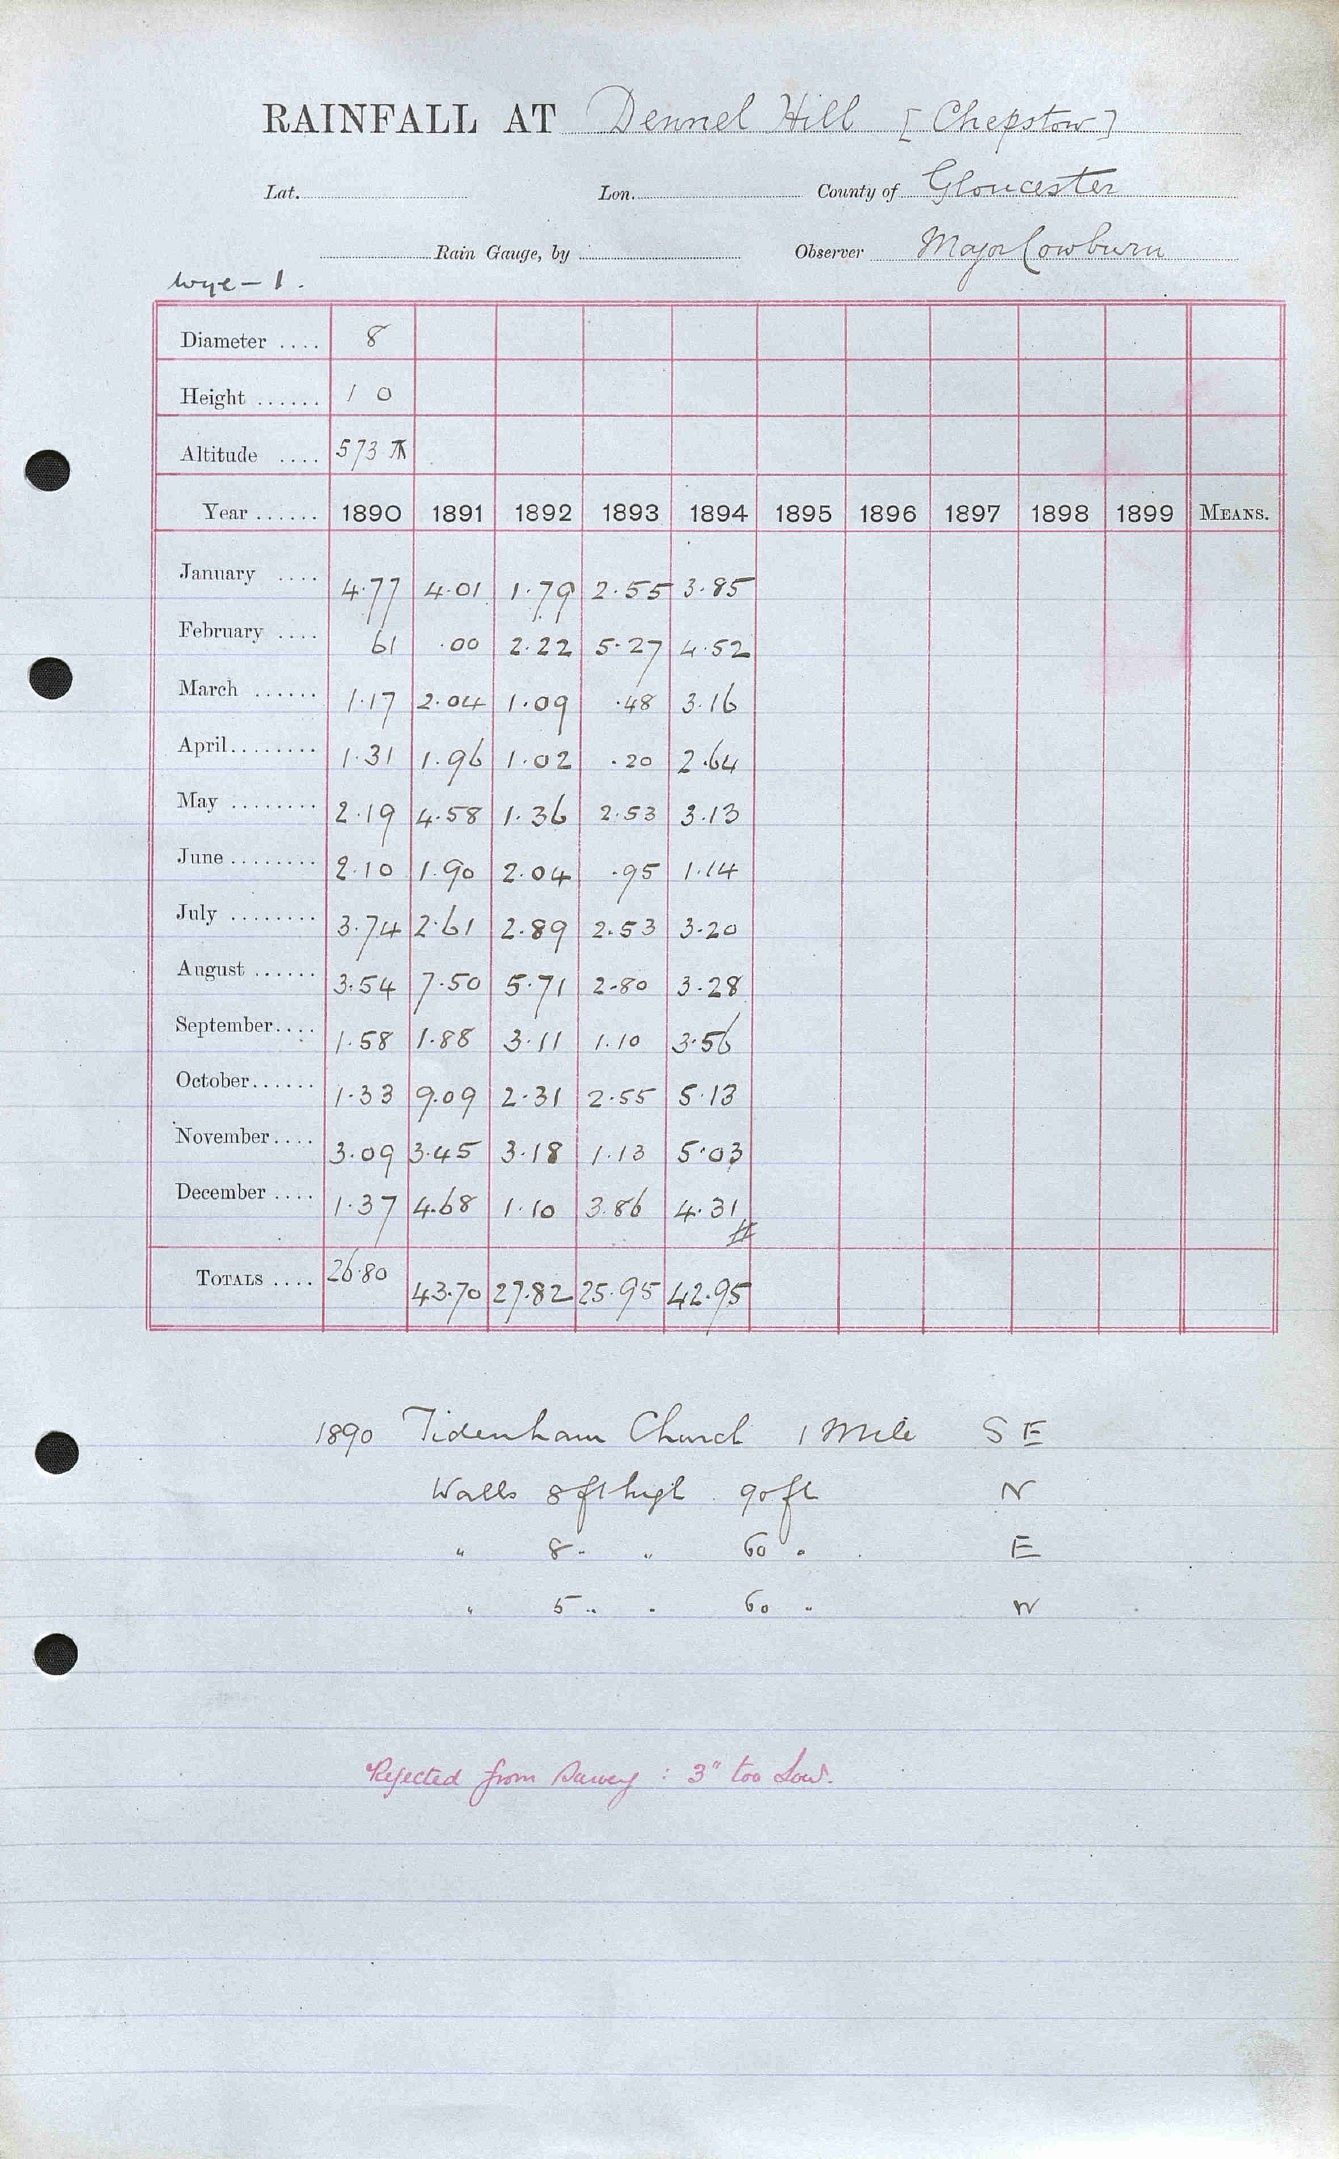 RAINFALL AT Dennel Hill [Chepstow]
Lat. Lon. County of Gloucester
Rain Gauge, by Observer Major Cowburn
Wye - 1.
Diameter .... 8
Height ...... 1 0
Altitude .... 573 ft
Year ...... 1890 1891 1892 1893 1894 1895 1896 1897 1898 1899 MEANS.
January .... 4.77 4.01 1.79 2.55 3.85
February .... 61 .00 2.22 5.27 4.52
March ...... 1.17 2.04 1.09 .48 3.16
April........ 1.31 1.96 1.02 .20 2.64
May ........ 2.19 4.58 1.36 2.53 3.13
June ........ 2.10 1.90 2.04 .95 1.14
July ........ 3.74 2.61 2.89 2.53 3.20
August ...... 3.54 7.50 5.71 2.80 3.28
September.... 1.58 1.88 3.11 1.10 3.56
October...... 1.33 9.09 2.31 2.55 5.13
November.... 3.09 3.45 3.18 1.13 5.03
December .... 1.37 4.68 1.10 3.86 4.31
TOTALS .... 26.80 43.70 27.82 25.95 42.95
1890 Tidenham Church 1 Mile S E
Walls 8 ft high 90 ft N
" 8 " " 60 " E
" 5 " " 60 " W
Rejected from Survey : 3" too low.